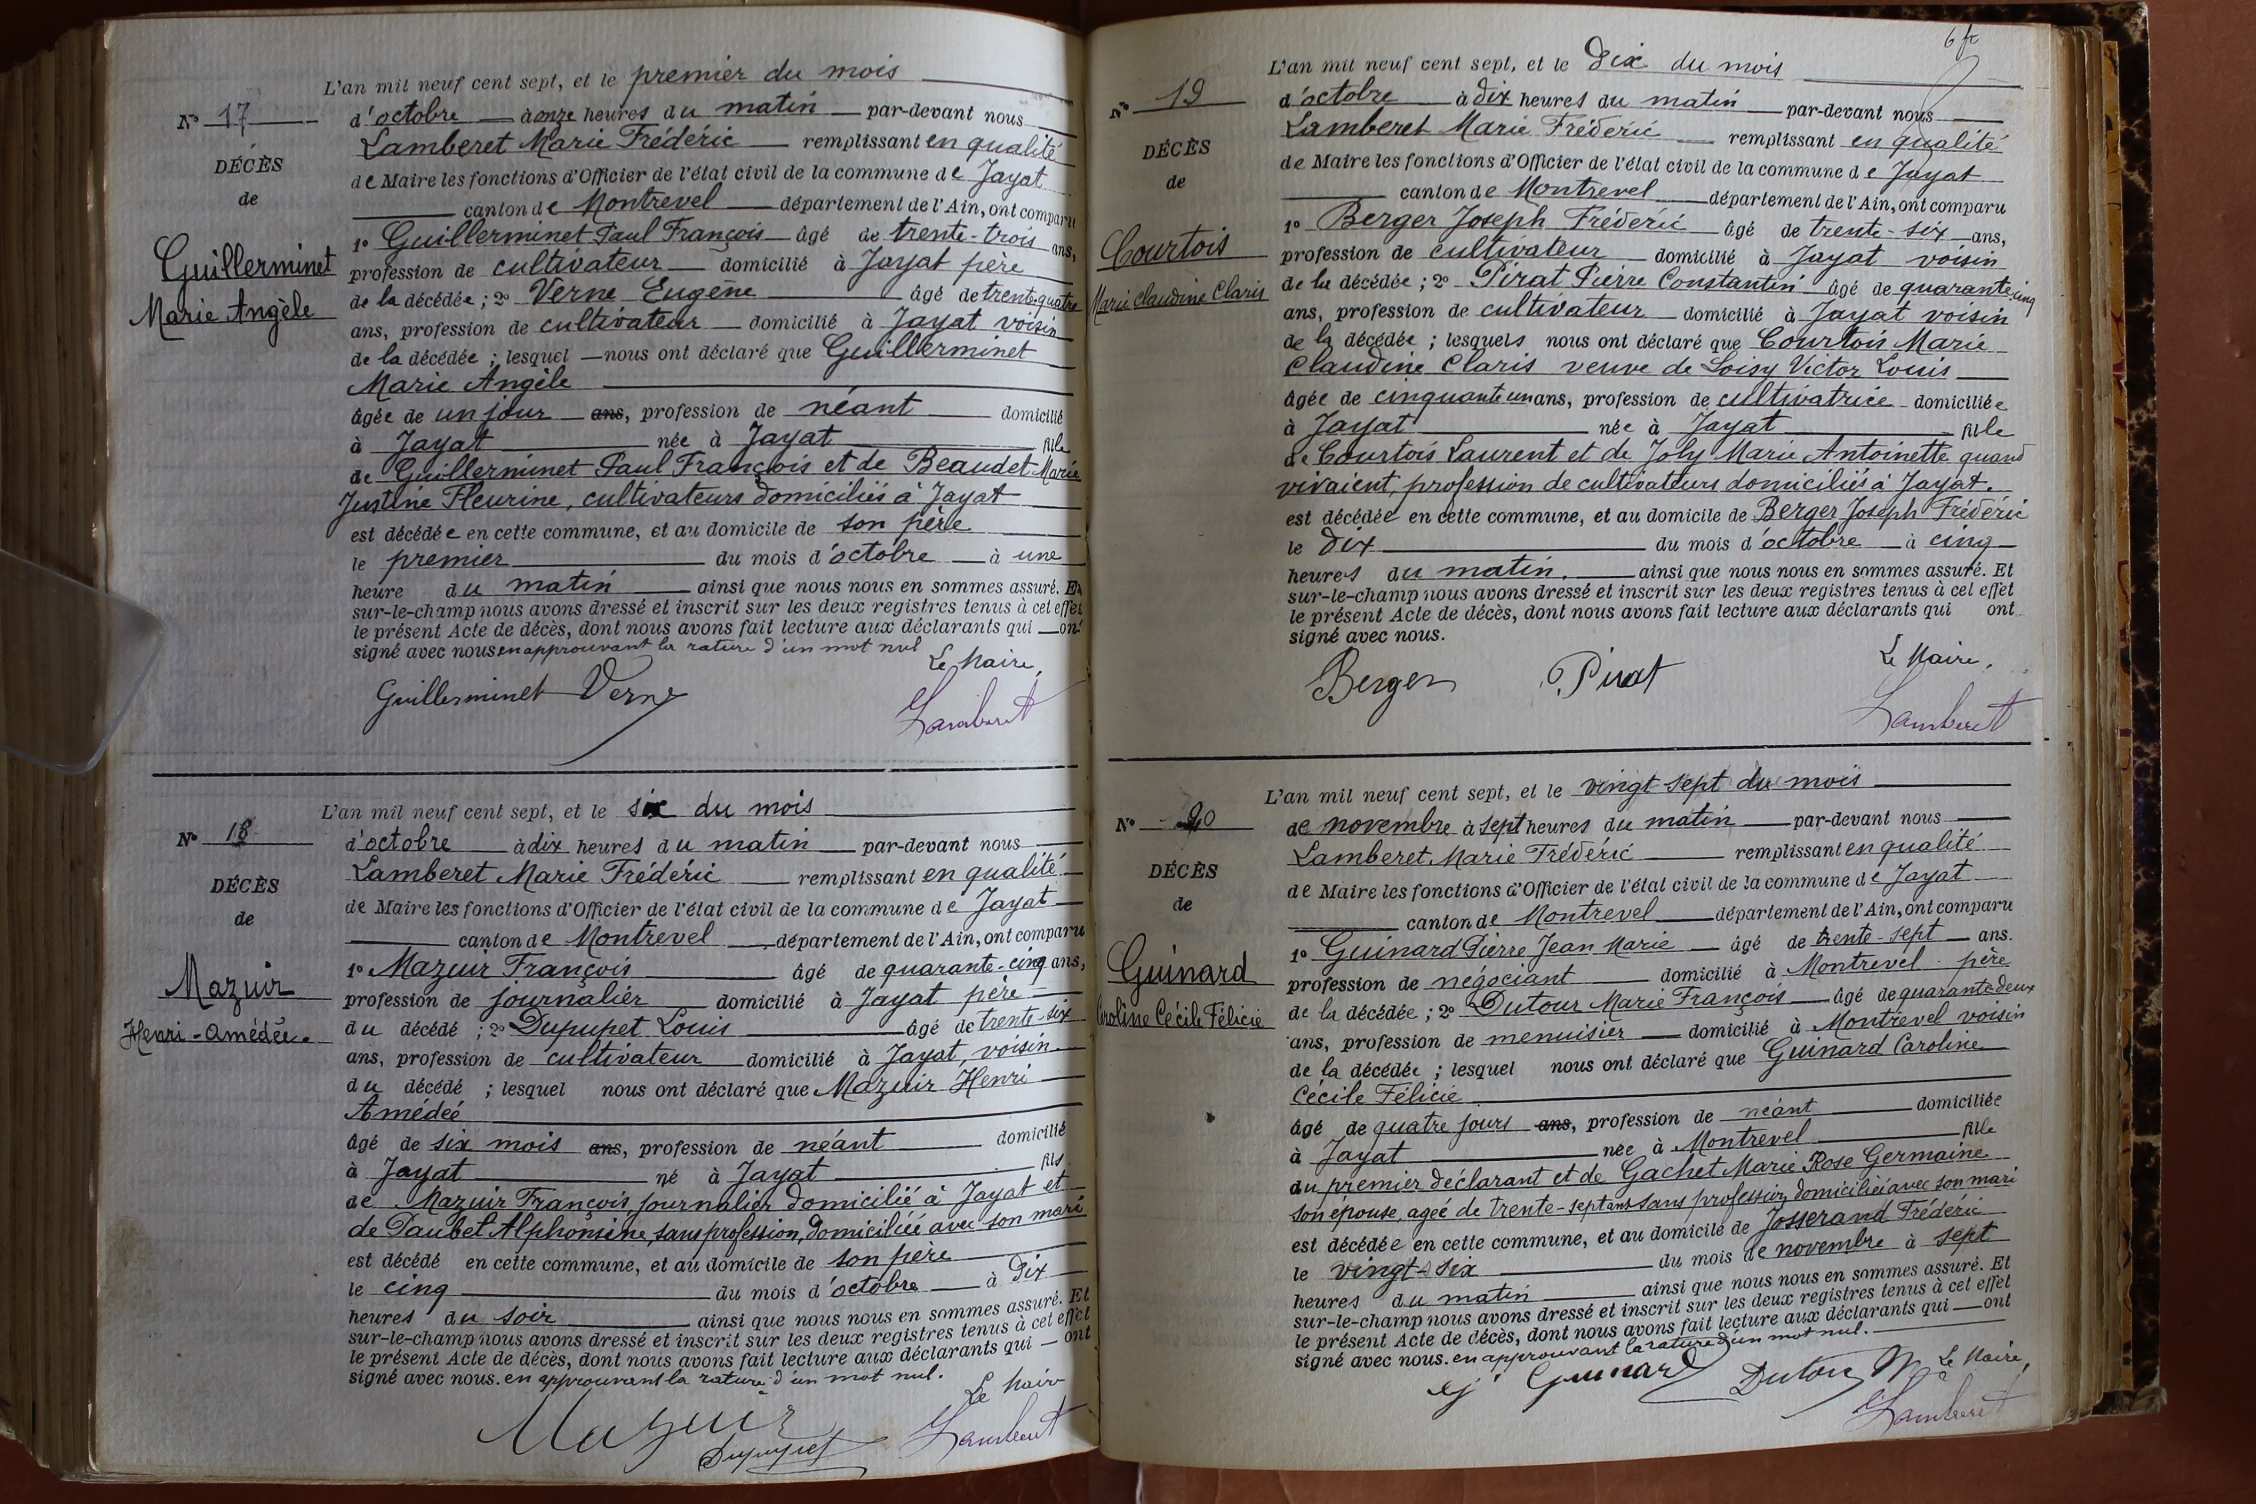 L'an mil neuf cent sept, et le premier du mois
N° 17
d'octobre à onze heures du matin par-devant nous
Lamberet Marie Frédéric remplissant en qualité
DÉCÈS
de Maire les fonctions d'Officier de l'état civil de la commune de Jayat
de
canton de Montrevel département de l'Ain, ont comparu
1° Guillerminet Paul François âgé de trente-trois ans,
Guillerminet
profession de cultivateur domicilié à Jayat père
Marie Angèle
de la décédée ; 2° Verne Eugène âgé de trente-quatre
ans, profession de cultivateur domicilié à Jayat voisin
de la décédée ; lesquel nous ont déclaré que Guillerminet
Marie Angèle
âgée de un jour ans, profession de néant domicilié
à Jayat née à Jayat fille
de Guillerminet Paul François et de Beaudet Marie
Justine Fleurine, cultivateurs domiciliés à Jayat
est décédée en cette commune, et au domicile de son père
le premier du mois d'octobre à une
heure du matin ainsi que nous nous en sommes assuré. Et
sur-le-champ nous avons dressé et inscrit sur les deux registres tenus à cet effet
le présent Acte de décès, dont nous avons fait lecture aux déclarants qui ont
signé avec nous en approuvant la rature d'un mot nul
Le Maire,
Guillerminet Verne
Lamberet
L'an mil neuf cent sept, et le six du mois
N° 18
d'octobre à dix heures du matin par-devant nous
Lamberet Marie Frédéric remplissant en qualité
DÉCÈS
de Maire les fonctions d'Officier de l'état civil de la commune de Jayat
de
canton de Montrevel département de l'Ain, ont comparu
1° Mazuir François âgé de quarante-cinq ans,
Mazuir
profession de journalier domicilié à Jayat père
Henri-Amédée
du décédé ; 2° Dupupet Louis âgé de trente-six
ans, profession de cultivateur domicilié à Jayat, voisin
du décédé ; lesquel nous ont déclaré que Mazuir Henri
Amédeé
âgé de six mois ans, profession de néant domicilié
à Jayat né à Jayat fils
de Mazuir François, journalier domicilié à Jayat et
de Daubet Alphonsine, sans profession, domiciliée avec son mari
est décédé en cette commune, et au domicile de son père
le cinq du mois d'octobre à dix
heures du soir ainsi que nous nous en sommes assuré. Et
sur-le-champ nous avons dressé et inscrit sur les deux registres tenus à cet effet
le présent Acte de décès, dont nous avons fait lecture aux déclarants qui ont
signé avec nous. en approuvant la rature d'un mot nul.
Le Maire
Mazuir
Dupupet
Lamberet
L'an mil neuf cent sept, et le dix du mois
N° 19
d'octobre à dix heures du matin par-devant nous
Lamberet Marie Frédéric remplissant en qualité
DÉCÈS
de Maire les fonctions d'Officier de l'état civil de la commune de Jayat
de
canton de Montrevel département de l'Ain, ont comparu
1° Berger Joseph Frédéric âgé de trente-six ans,
Courtois
profession de cultivateur domicilié à Jayat voisin
Marie Claudine Claris
de la décédée ; 2° Pirat Pierre Constantin âgé de quarante-cinq
ans, profession de cultivateur domicilié à Jayat voisin
de la décédée ; lesquels nous ont déclaré que Courtois Marie
Claudine Claris veuve de Loisy Victor Louis
âgée de cinquante un ans, profession de cultivatrice domiciliée
à Jayat née à Jayat fille
de Courtois Laurent et de Joly Marie Antoinette quand
vivaient, profession de cultivateurs domiciliés à Jayat.
est décédée en cette commune, et au domicile de Berger Joseph Frédéric
le dix du mois d'octobre à cinq
heures du matin. ainsi que nous nous en sommes assuré. Et
sur-le-champ nous avons dressé et inscrit sur les deux registres tenus à cet effet
le présent Acte de décès, dont nous avons fait lecture aux déclarants qui ont
signé avec nous.
Le Maire,
Berger Pirat
Lamberet
L'an mil neuf cent sept, et le vingt-sept du mois
N° 20
de novembre à sept heures du matin par-devant nous
Lamberet Marie Frédéric remplissant en qualité
DÉCÈS
de Maire les fonctions d'Officier de l'état civil de la commune de Jayat
de
canton de Montrevel département de l'Ain, ont comparu
1° Guinard Pierre Jean Marie âgé de trente-sept ans.
Guinard
profession de négociant domicilié à Montrevel père
Caroline Cécile Félicie
de la décédée ; 2° Dutour Marie François âgé de quarante-deux
ans, profession de menuisier domicilié à Montrevel voisin
de la décédée ; lesquel nous ont déclaré que Guinard Caroline
Cécile Félicie
âgé de quatre jours ans, profession de néant domiciliée
à Jayat née à Montrevel fille
du premier déclarant et de Gachet Marie Rose Germaine
son épouse, ageé de trente-sept ans sans profession domiciliéé avec son mari
est décédée en cette commune, et au domicile de Josserand Frédéric
le vingt-six du mois de novembre à sept
heures du matin ainsi que nous nous en sommes assuré. Et
sur-le-champ nous avons dressé et inscrit sur les deux registres tenus à cet effet
le présent Acte de décès, dont nous avons fait lecture aux déclarants qui ont
signé avec nous. en approuvant la rature d'un mot nul.
Le Maire,
Guinard Dutour
Lamberet